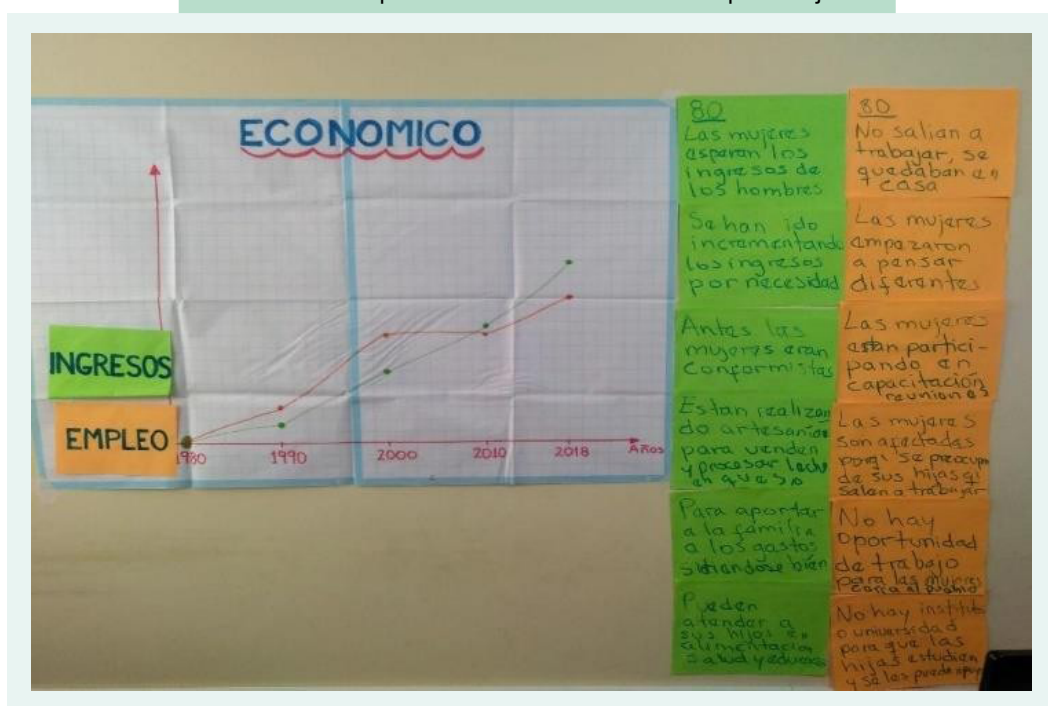 ECONOMICO
INGRESOS
EMPLEO
1980 1990 2000 2010 2018 Años
80
Las mujeres
esperan los
ingresos de
los hombres
Se han ido
incrementando
los ingresos
por necesidad
Antes las
mujeres eran
conformistas
Estan realizan
do artesanías
para venden
y procesar leche
en queso
Para aportar
a la familia
a los gastos
bien
Pueden
atender a
sus hijos en
alimentación
salud y
80
No salian a
trabajar, se
quedaban en
casa
Las mujeres
empezaron
a pensar
diferentes
Las mujeres
estan partici-
pando en
capacitación
reuniones
Las mujeres
son afectadas
porq' se
de sus hijas q'
salen a trabajar
No hay
oportunidad
de trabajo
para las mujeres
cerca al pueblo
No hay
o universidad
para que las
hijas estudien
y se les puede